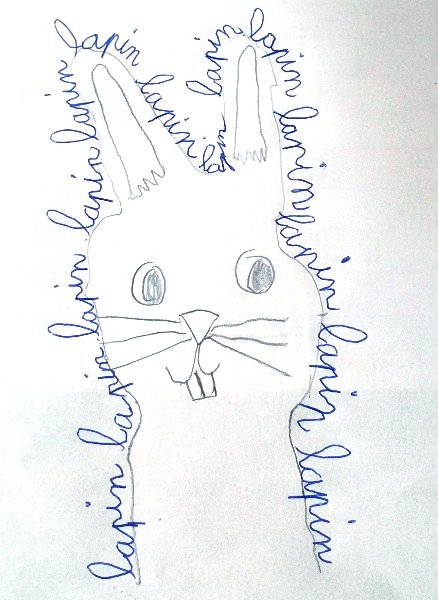 lapin
lapin
lapin
lapin
lapin
lapin
lapin
lapin
lapin
lapin
lapin
lapin
lapin
lapin